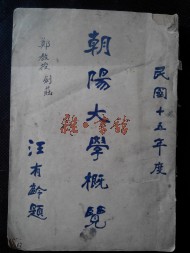 民國十五年度
朝陽大學概覽
汪有齡題